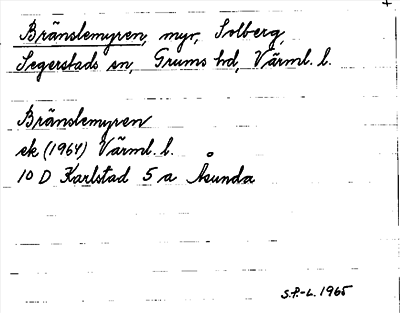 Bränslemyren, myr, Solberg,
Segerstads sn, Grums hd, Värml. l.
Bränslemyren
ek (1964) Värml. l.
10 D Karlstad 5 a Åsunda
S.P.-L. 1965